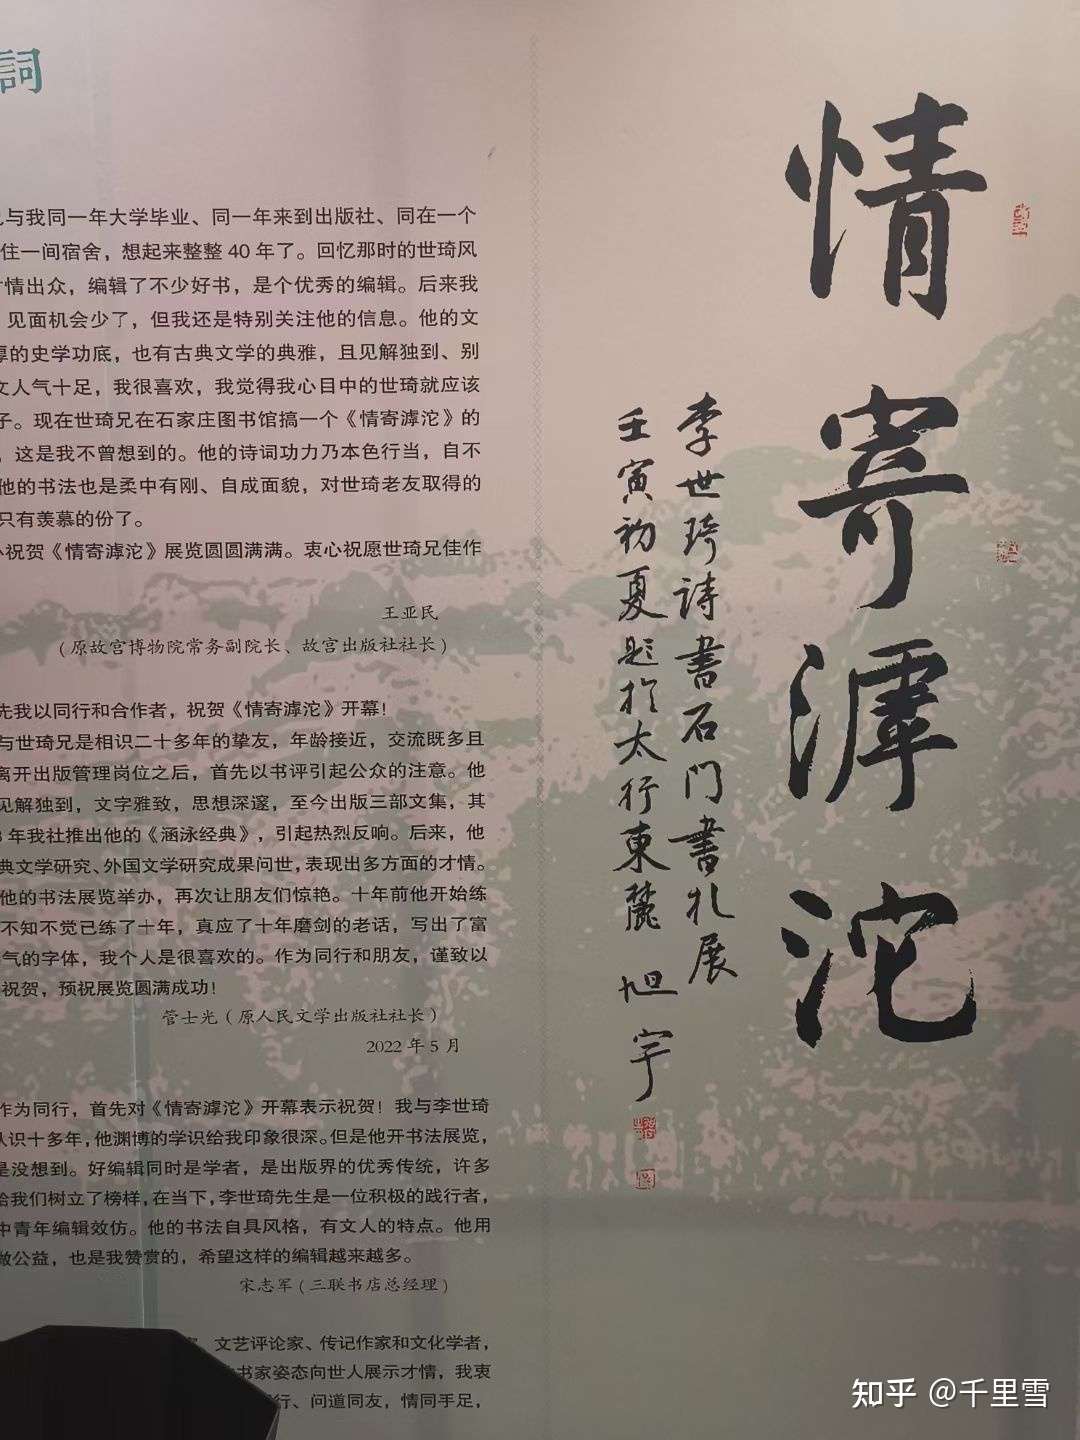 詞
与我同一年大学毕业、同一年来到出版社、同在一个
住一间宿舍，想起来整整 40 年了。回忆那时的世琦风
情出众，编辑了不少好书，是个优秀的编辑。后来我
见面机会少了，但我还是特别关注他的信息。他的文
厚的史学功底，也有古典文学的典雅，且见解独到、别
文人气十足，我很喜欢，我觉得我心目中的世琦就应该
子。现在世琦兄在石家庄图书馆搞一个《情寄滹沱》的
，这是我不曾想到的。他的诗词功力乃本色行当，自不
他的书法也是柔中有刚、自成面貌，对世琦老友取得的
只有羡慕的份了。
祝贺《情寄滹沱》展览圆圆满满。衷心祝愿世琦兄佳作
王亚民
（原故宫博物院常务副院长、故宫出版社社长）
先我以同行和合作者，祝贺《情寄滹沱》开幕！
与世琦兄是相识二十多年的挚友，年龄接近，交流既多且
离开出版管理岗位之后，首先以书评引起公众的注意。他
见解独到，文字雅致，思想深邃，至今出版三部文集，其
年我社推出他的《涵泳经典》，引起热烈反响。后来，他
典文学研究、外国文学研究成果问世，表现出多方面的才情。
他的书法展览举办，再次让朋友们惊艳。十年前他开始练
不知不觉已练了十年，真应了十年磨剑的老话，写出了富
气的字体，我个人是很喜欢的。作为同行和朋友，谨致以
祝贺，预祝展览圆满成功！
管士光（原人民文学出版社社长）
2022 年 5 月
作为同行，首先对《情寄滹沱》开幕表示祝贺！我与李世琦
认识十多年，他渊博的学识给我印象很深。但是他开书法展览，
是没想到。好编辑同时是学者，是出版界的优秀传统，许多
给我们树立了榜样，在当下，李世琦先生是一位积极的践行者，
中青年编辑效仿。他的书法自具风格，有文人的特点。他用
做公益，也是我赞赏的，希望这样的编辑越来越多。
宋志军（三联书店总经理）
文艺评论家、传记作家和文化学者，
书家姿态向世人展示才情，我衷
行、问道同友，情同手足，
情寄滹沱
李世琦詩書石门書札展
壬寅初夏题於太行東麓 旭宇
知乎 @千里雪